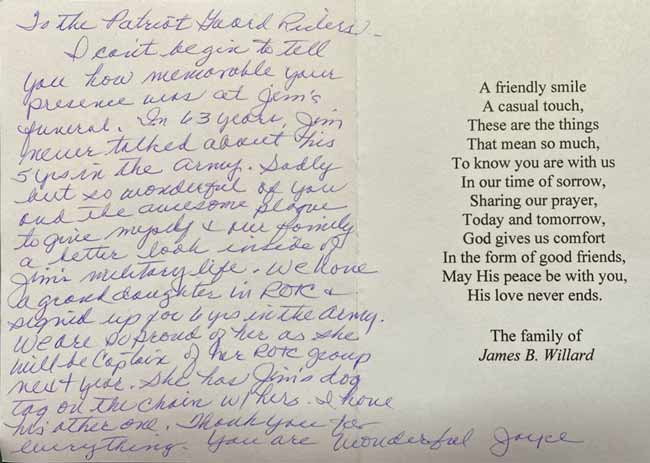 To the Patriot Guard Riders -
I can't begin to tell
you how memorable your
presence was at Jim's
funeral. In 43 years, Jim
never talked about his
5 yrs in the army. Sadly
but so wonderful of you
and the awesome plaque
to give myself & our family
a better look inside of
Jim's military life. We have
a granddaughter in ROTC &
signed up for 6 yrs in the army.
We are so proud of her as she
will be Captain of her ROTC group
next year. She has Jim's dog
tag on the chain w/ hers. I have
his other one. Thank you for
everything. You are wonderful Joyce
A friendly smile
A casual touch,
These are the things
That mean so much,
To know you are with us
In our time of sorrow,
Sharing our prayer,
Today and tomorrow,
God gives us comfort
In the form of good friends,
May His peace be with you,
His love never ends.
The family of
James B. Willard